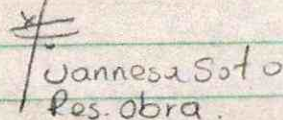 Vannesa Soto
Res. Obra.